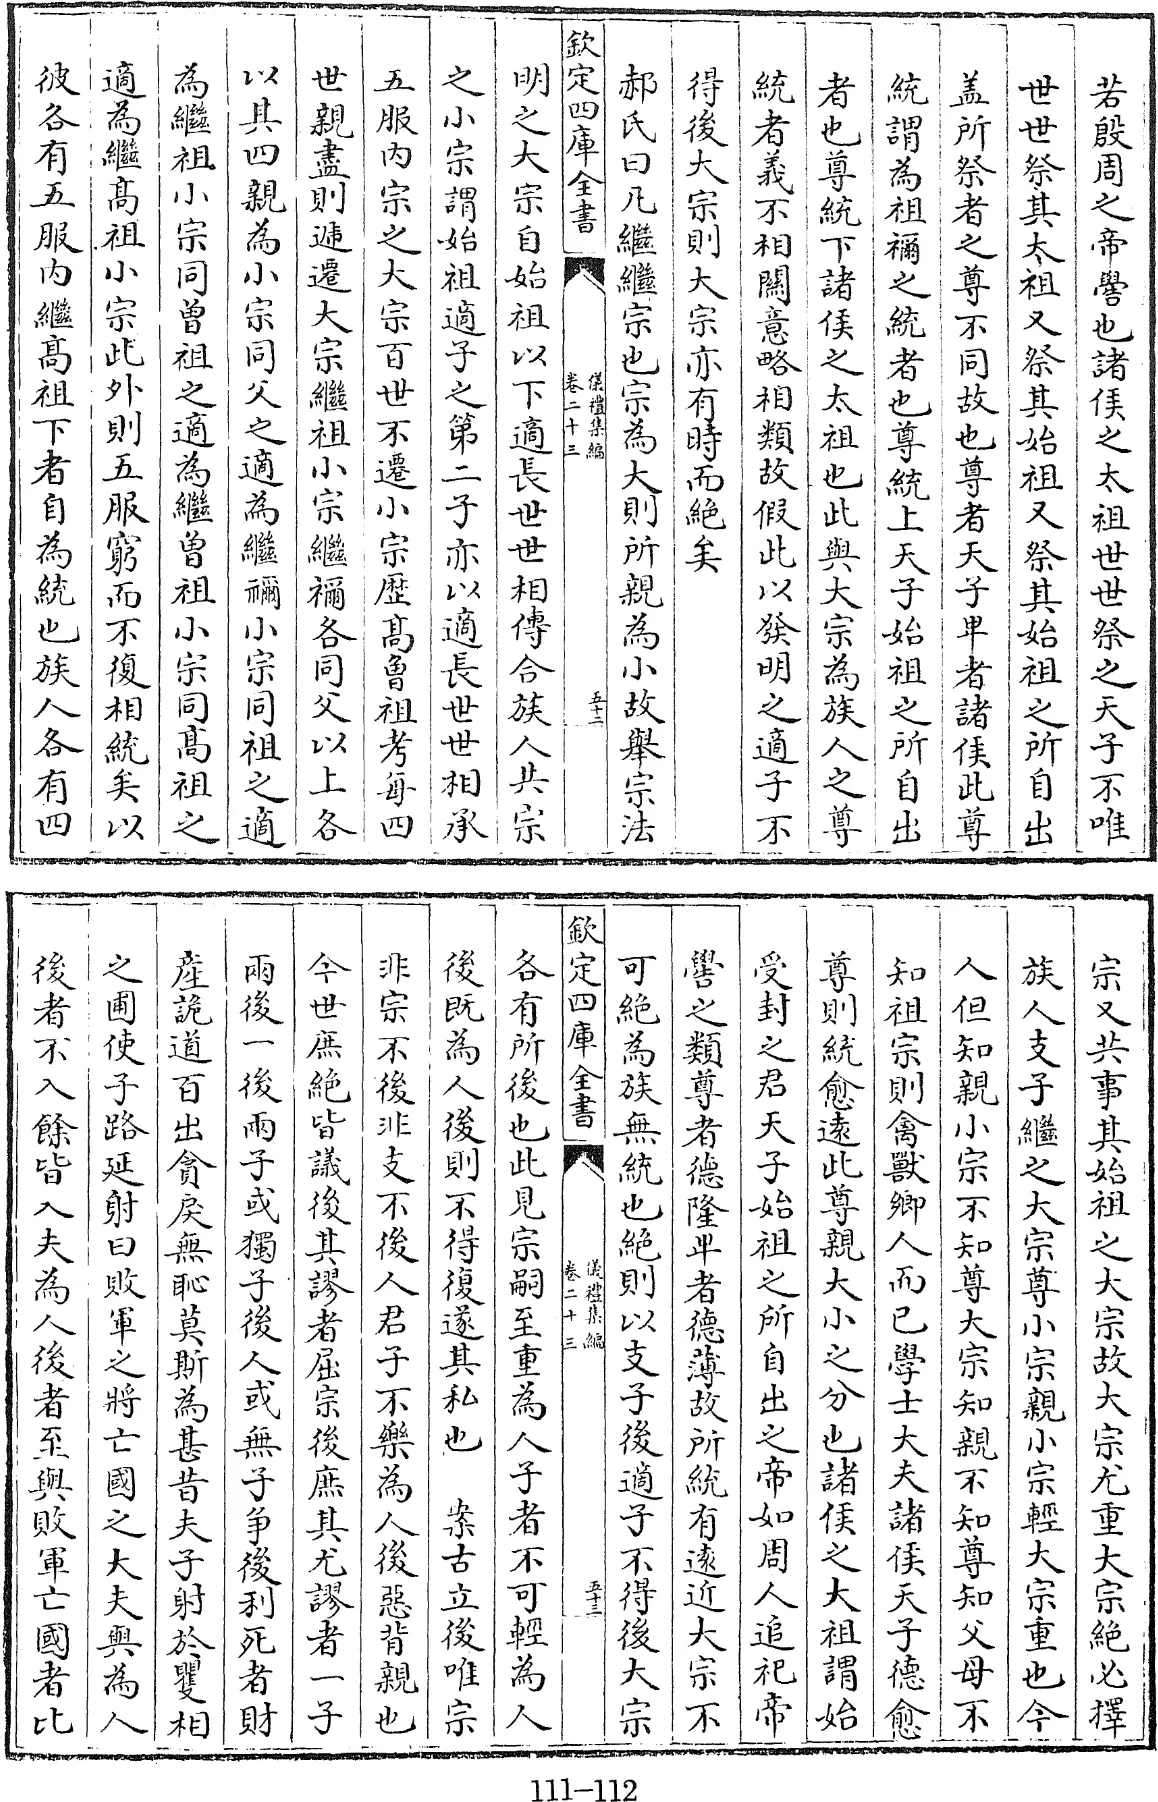 若殷周之帝嚳也諸侯之太祖世世祭之天子不唯
世世祭其太祖又祭其始祖又祭其始祖之所自出
盖所祭者之尊不同故也尊者天子卑者諸侯此尊
統謂為祖禰之統者也尊統上天子始祖之所自出
者也尊統下諸侯之太祖也此與大宗為族人之尊
統者義不相關意略相類故假此以發明之適子不
得後大宗則大宗亦有時而絶矣
郝氏曰凡繼繼宗也宗為大則所親為小故舉宗法
欽定四庫全書
儀禮集編
卷二十三
五十二
明之大宗自始祖以下適長世世相傳合族人共宗
之小宗謂始祖適子之第二子亦以適長世世相承
五服内宗之大宗百世不遷小宗歴髙曾祖考每四
世親盡則遞遷大宗繼祖小宗繼禰各同父以上各
以其四親為小宗同父之適為繼禰小宗同祖之適
為繼祖小宗同曽祖之適為繼曽祖小宗同髙祖之
適為繼髙祖小宗此外則五服窮而不復相統矣以
彼各有五服内繼髙祖下者自為統也族人各有四
宗又共事其始祖之大宗故大宗尤重大宗絶必擇
族人支子繼之大宗尊小宗親小宗輕大宗重也今
人但知親小宗不知尊大宗知親不知尊知父母不
知祖宗則禽獸鄉人而已學士大夫諸侯天子德愈
尊則統愈遠此尊親大小之分也諸侯之大祖謂始
受封之君天子始祖之所自出之帝如周人追祀帝
嚳之類尊者德隆卑者德薄故所統有遠近大宗不
可絶為族無統也絶則以支子後適子不得後大宗
欽定四庫全書
儀禮集編
卷二十三
五十三
各有所後也此見宗嗣至重為人子者不可輕為人
後既為人後則不得復遂其私也　案古立後唯宗
非宗不後非支不後人君子不樂為人後惡背親也
今世庶絶皆議後其謬者屈宗後庶其尤謬者一子
兩後一後兩子或獨子後人或無子争後利死者財
産詭道百出貪戾無恥莫斯為甚昔夫子射於矍相
之圃使子路延射曰敗軍之將亡國之大夫與為人
後者不入餘皆入夫為人後者至與敗軍亡國者比
111—112